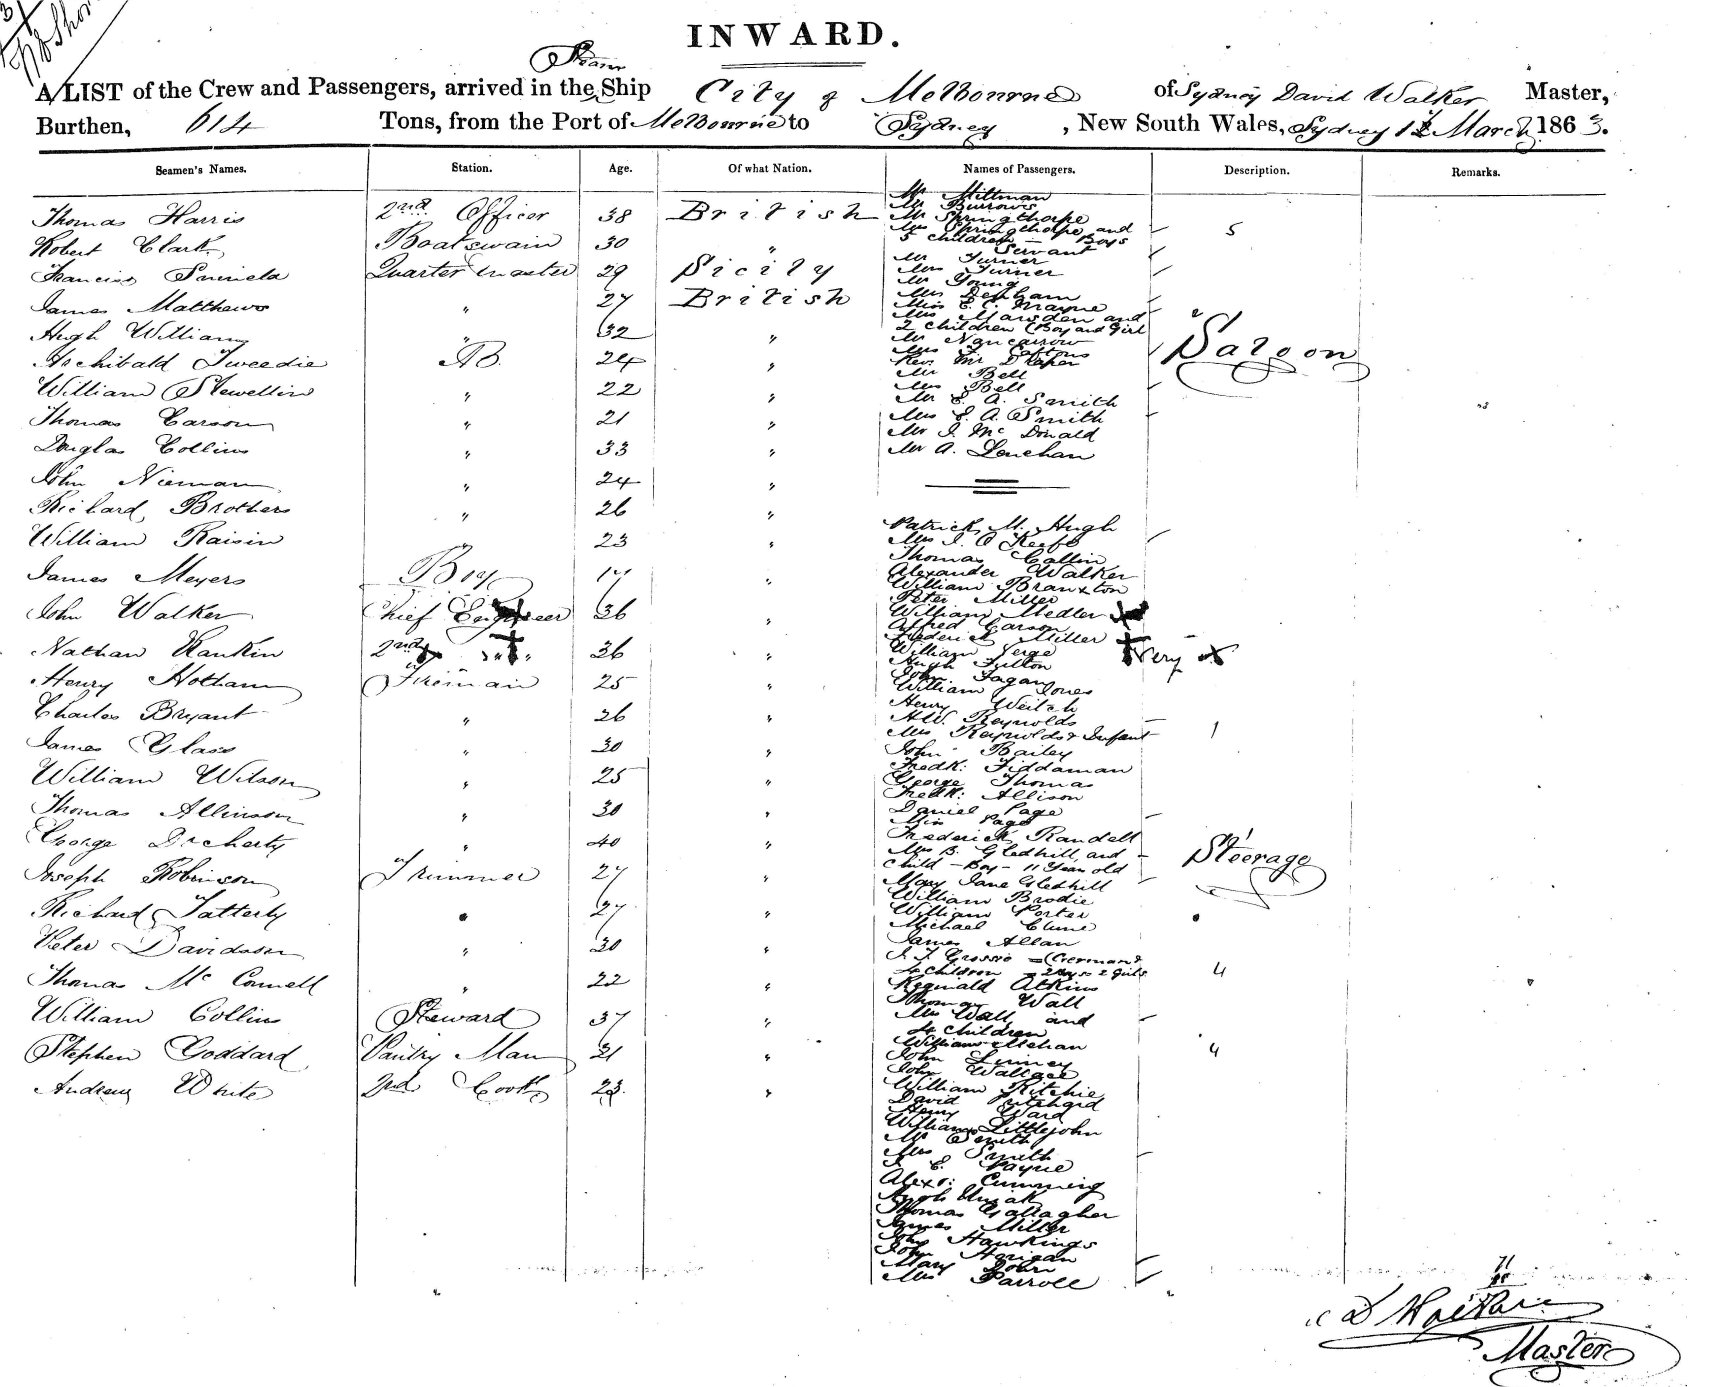 INWARD.
Steam
A LIST of the Crew and Passengers, arrived in the Ship City of Melbourne of Sydney David Walker Master,
Burthen, 614 Tons, from the Port of Melbourne to Sydney, New South Wales, Sydney 12 March 1863.
Seamen's Names. Station. Age. Of what Nation. Names of Passengers. Description. Remarks.
Thomas Harris 2nd Officer 38 British
Robert Clark Boatswain 30 "
Francis Quarter master 29 Sicily
James Matthews " 27 British
Hugh William " 32 "
Archibald Tweedie AB. 24 "
William Stewellin " 22 "
Thomas Carson " 21 "
Douglas Collins " 33 "
John Nieman " 24 "
Richard Brothers " 26 "
William Raisin " 23 "
James Meyers Boy 17 "
John Walker Chief Engineer 36 "
Nathan Rankin 2nd " 36 "
Henry Hotham Fireman 25 "
Charles Bryant " 26 "
James Glass " 30 "
William Wilson " 25 "
Thomas Allinson " 30 "
George Docherty " 40 "
Joseph Robinson Trimmer 27 "
Richard Tatterly " 27 "
Peter Davidson " 30 "
Thomas McConnell " 22 "
William Collins Steward 37 "
Stephen Goddard Pantry Man 31 "
Andrew White 2nd Cook 23 "
Mr Millman
Mr Burrows
Mr Springthorpe
Mrs Springthorpe and
5 children - Boys 5
Servant
Mr Turner
Mrs Turner
Mr Young
Mrs Denham
Miss E. C. Mayne
Mrs Marsden and
2 children (Boy and Girl 2
Mr Nancarrow
Mrs
Rev. Mr Draper
Saloon
Mr Bell
Mrs Bell
Mr E. A. Smith
Mrs E. A. Smith
Mr J. McDonald
Mr A. Lenehan
Patrick M. Hugh
Mrs J. O Keefe
Thomas Collin
Alexander Walker
William Branxton
Peter Miller
William Medler
Alfred Carson
Frederick Miller
William Verge
Hugh Fulton
John Fagan
William Jones
Henry Weitch
A.W. Reynolds
Mrs Reynolds & Infant 1
John Bailey
Fredk: Fiddaman
George Thomas
Fredk: Allison
Daniel Page
Miss Page
Frederick Randell
Mrs B. Gledhill and 1
child - Boy - 11 Year old
Steerage
Mary Jane Gledhill
William Brodie
William Porter
Michael Clune
James Allan
J. J. Grossie = (German &
4 children = 2 Boys 2 Girls 4
Reginald Atkins
Thomas Wall
Mrs Wall and
4 children 4
William Mehan
John Linney
John Wallace
William Ritchie
David Pritchard
Henry Ward
William Littlejohn
Mr Smith
Mrs Smith
J. E. Payne
Alexr: Cumming
Hugh
Thomas Gallagher
James Miller
John Hawkings
John Horigan
Mary John
Mrs Parroll
71
D Walker
Master